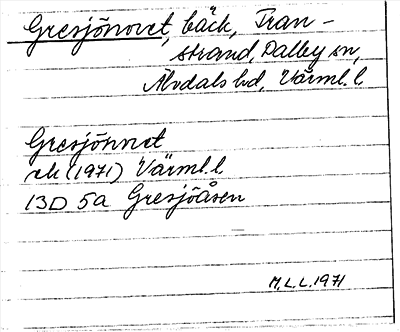 Gresjönovet, bäck, Tran-
strand, Dalby sn,
Älvdals hd, Värml. l
Gresjönnet
ek (1971) Värml. l
13D 5a Gresjöåsen
M.L.L. 1971